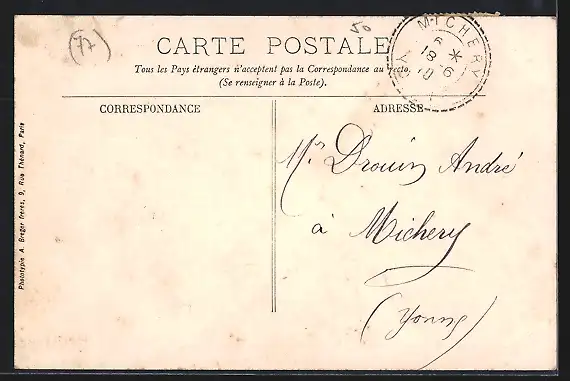 (77)
50
CARTE POSTALE
Tous les Pays étrangers n'acceptent pas la Correspondance au recto
(Se renseigner à la Poste).
MICHERY
6
18 6
10
CORRESPONDANCE
ADRESSE
Mr Drouin André
à Michery
(Yonne)
Phototypie A. Breger frères, 9, Rue Thénard, Paris